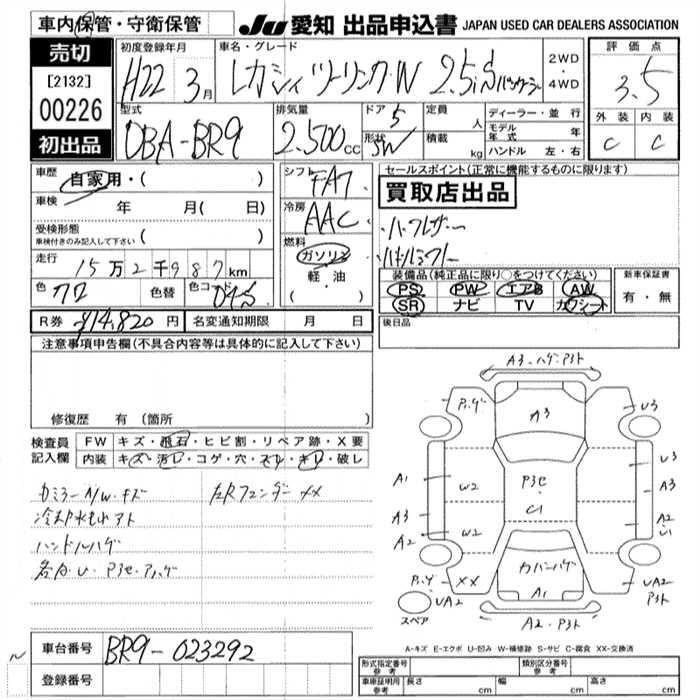 車内保管・守衛保管
JU 愛知 出品申込書 JAPAN USED CAR DEALERS ASSOCIATION
売切
[2132]
00226
初出品
初度登録年月
H22 3月
車名・グレード
レガシィツーリングW 2.5i S
2WD
・
4WD
評価点
3.5
外装 内装
C C
型式
DBA-BR9
排気量
2.500cc
ドア 5
形状 SW
定員 人
積載 kg
ディーラー・並行
モデル年式 年
ハンドル 左・右
車歴 自家用・( )
車検 年 月( 日)
受検形態
車検付きのみ記入して下さい ( )
走行 15万2千987km
色 クロ 色替 色コード D4S
シフト FAT
冷房 AAC
燃料 ガソリン
軽・油
( ・ )
セールスポイント(正常に機能するものに限ります)
買取店出品
・ハーフレザー
装備品(純正品に限り○をつけてください)
PS PW エアB AW
SR ナビ TV カワシート
新車保証書
有・無
R券 ¥14,820円 名変通知期限 月 日
後日品
注意事項申告欄(不具合内容等は具体的に記入して下さい)
修復歴 有(箇所
検査員記入欄
FW キズ・飛石・ヒビ割・リペア跡・X要
内装 キズ・汚レ・コゲ・穴・スレ・キレ・破レ
カミラーA/W・キズ 左Rフェンダー XX
冷却水モレアト
ハンドルハゲ
各カ・U・P3セ・アハゲ
A3・ハゲ・P3ト
P.ハゲ A3 U3
A1 W2 P3セ U3
A3
C1
A3 W2 A2
U1
A2
カバーハゲ
XX A1 UA2
P3ト
UA2
スペア
A2・P3ト
A-キズ E-エクボ U-凹み W-補修跡 S-サビ C-腐食 XX-交換済
車台番号 BR9-023292
登録番号
形式指定番号 参考 類別区分番号 参考
車庫証明用 参考 長さ cm 幅 cm 高さ cm